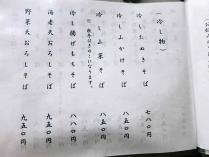 (冷し物)
冷したぬきそば 七八〇円
冷しぶかけそば 八五〇円
冷し山菜そば 八五〇円
冷し揚げもちそば 八八〇円
海老天おろしそば 九五〇円
野菜天おろしそば 九五〇円